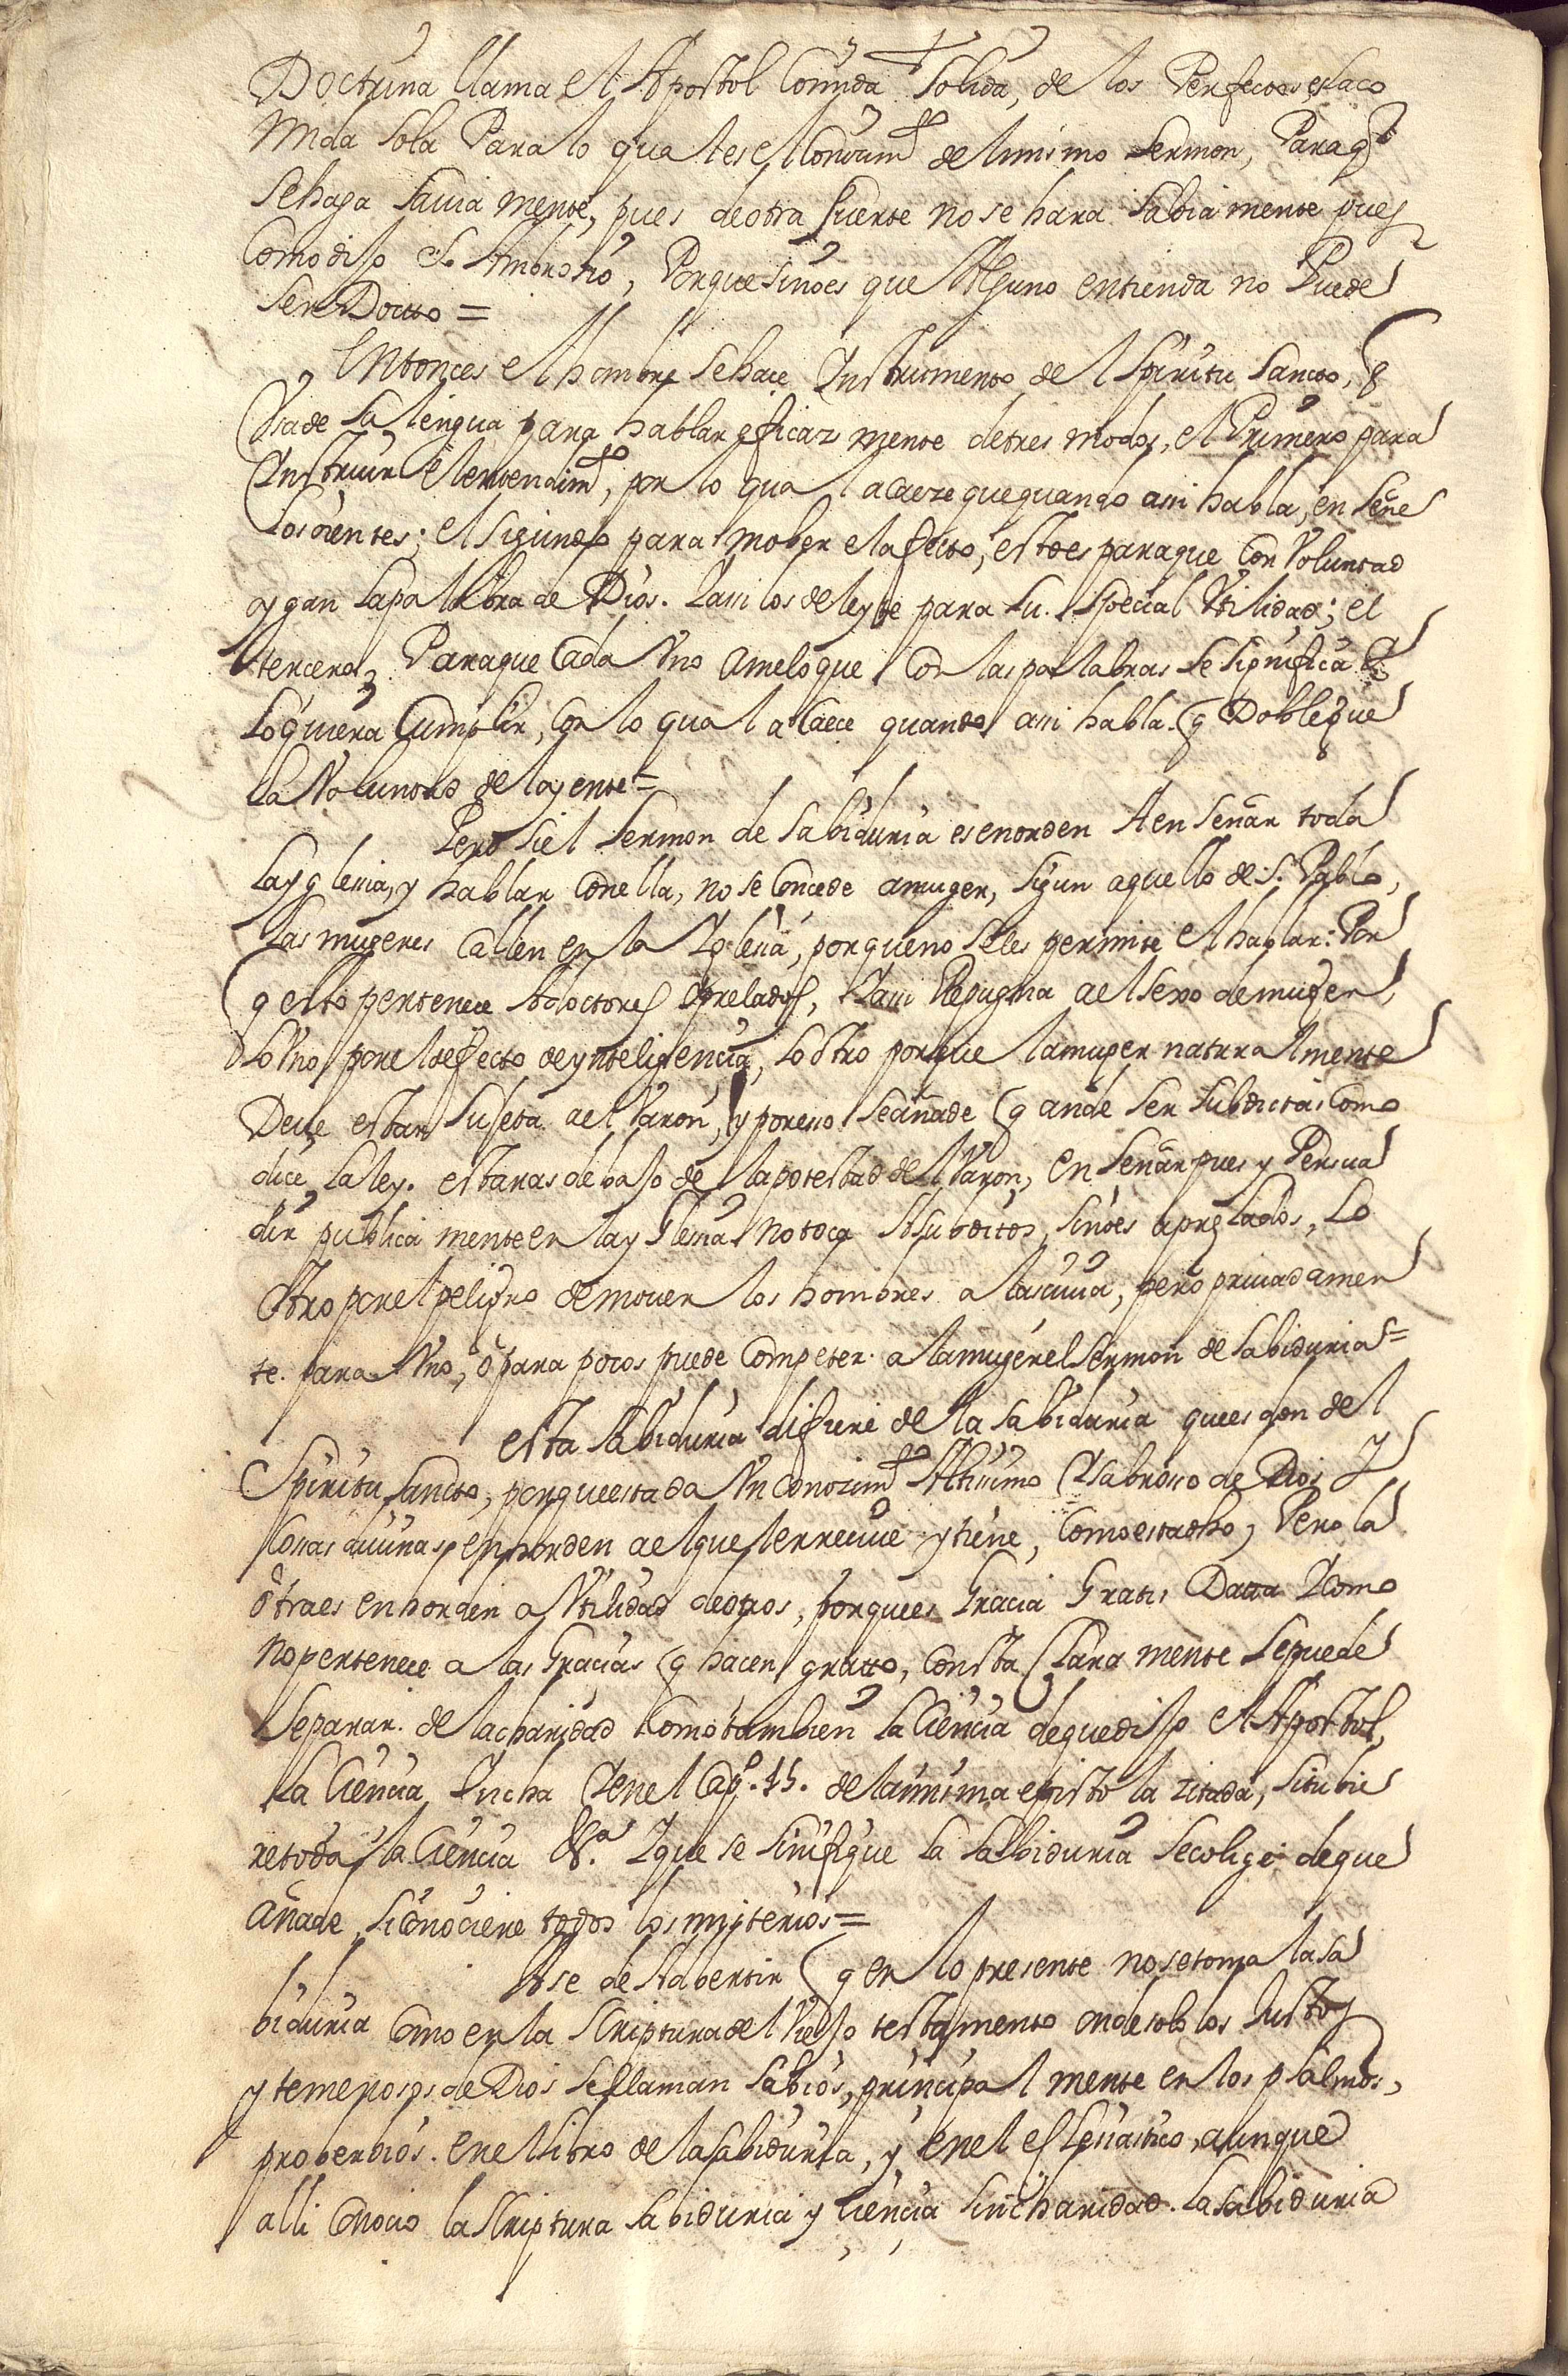 Doctrina llama el Apostol Comida Solida, de los Perfectos es la co
mida sola Para lo qual es el Conocim.to del mismo Sermon, Para q.e
se haga Sauia mente, pues de otra suerte no se hara Sabia mente pues
Como dijo S. Ambrosio, Porque sino es que Alguno entienda no Puede
Ser Docto =
Entonces el hombre se hace Instrumento del Spiritu Sancto, &
Vsa de la lengua para hablar eficaz mente de tres modos, el Primero para
Instruir el entendim.to, por lo qual acaeze que quando assi habla, enseñe
Los oientes; el Segundo para mober el afecto, esto es para que Con Voluntad
oygan la palabra de Dios. Y assi los deleyte para su. Special Vtilidad; el
tercero, Para que Cada Vno ame lo que Con las palabras se significa &
lo quiera Cumplir, Con lo qual acaece quando assi habla. q Doblegue
la Voluntad del oyente =
Pero si el Sermon de Sabiduria es en orden A enseñar toda
la yglesia, y hablar Con ella, no se Concede a muger, segun aquello de S. Pablo,
Las mugeres Callen en la Yglesia, porque no se les permite el hablar: Por
q esto pertenece A doctores o prelados, Y assi Repugna a el sexo de muger,
Lo Vno por el defecto de ynteligencia, Lo otro porque la muger naturalmente
Deue estar Sujeta a el Varon, y por esso se añade q an de ser Subditas Como
dice la ley. estaras debajo de la potestad del Varon, enseñar pues y Persua
dir publica mente en la yglesia no toca A subditos, sino es a prelados, Lo
Otro por el peligro de mouer los hombres a lasciuia, pero priuadamen
te. para Vno, o para pocos puede Competer a la muger el Sermon de Sabiduria =
esta Sabiduria difiere de la Sabiduria que es don del
Spiritu Sancto, porque esta da Vn Conozim.to Altissimo Y sabroso de Dios Y
Cosas diuinas, en horden a el que le rreciue y tiene, Como esta dho, Pero la
otra es en horden a Vtilidad de otros, porque es Gracia Gratis Data Y Como
no pertenece a las Gracias q hacen gratto, Consta Clara mente se puede
Separar. de la charidad Como tambien la Ciencia de que dijo el Apostol,
La Ciencia Yncha Y en el Cap.o 13. de la misma epistola zitada, Si tubie
re toda la Ciencia &.a Y que se Sinifique la Sabiduria se colige de que
Añade, Si Conociere todos los misterios =
Ase de Adbertir q en lo presente no se toma la sa
biduria Como en la Scriptura del Viejo testamento onde solo los Justos
y temerosos de Dios se llaman Sabios, principal mente en los psalmos,
proberbios. en el libro de la sabiduria, y en el eclesiastico, aunque
alli Conocio la Scriptura Sabiduria y Ciencia sin charidad. La sabiduria